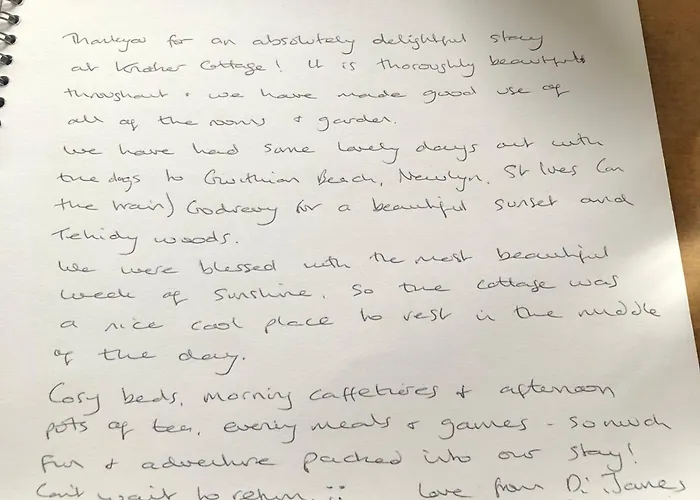 Thankyou for an absolutely delightful stay
at Kroher Cottage! It is thoroughly beautiful
throughout & we have made good use of
all of the rooms & garden.
We have had some lovely days out with
the dogs to Gwithian Beach, Newlyn, St Ives (on
the train) Godrevy for a beautiful sunset and
Tehidy woods.
We were blessed with the most beautiful
week of sunshine. So the cottage was
a nice cool place to rest in the middle
of the day.
Cosy beds, morning caffetieres & afternoon
pots of tea, evening meals & games - so much
fun & adventure packed into our stay!
Can't wait to return. :: Love from Di James